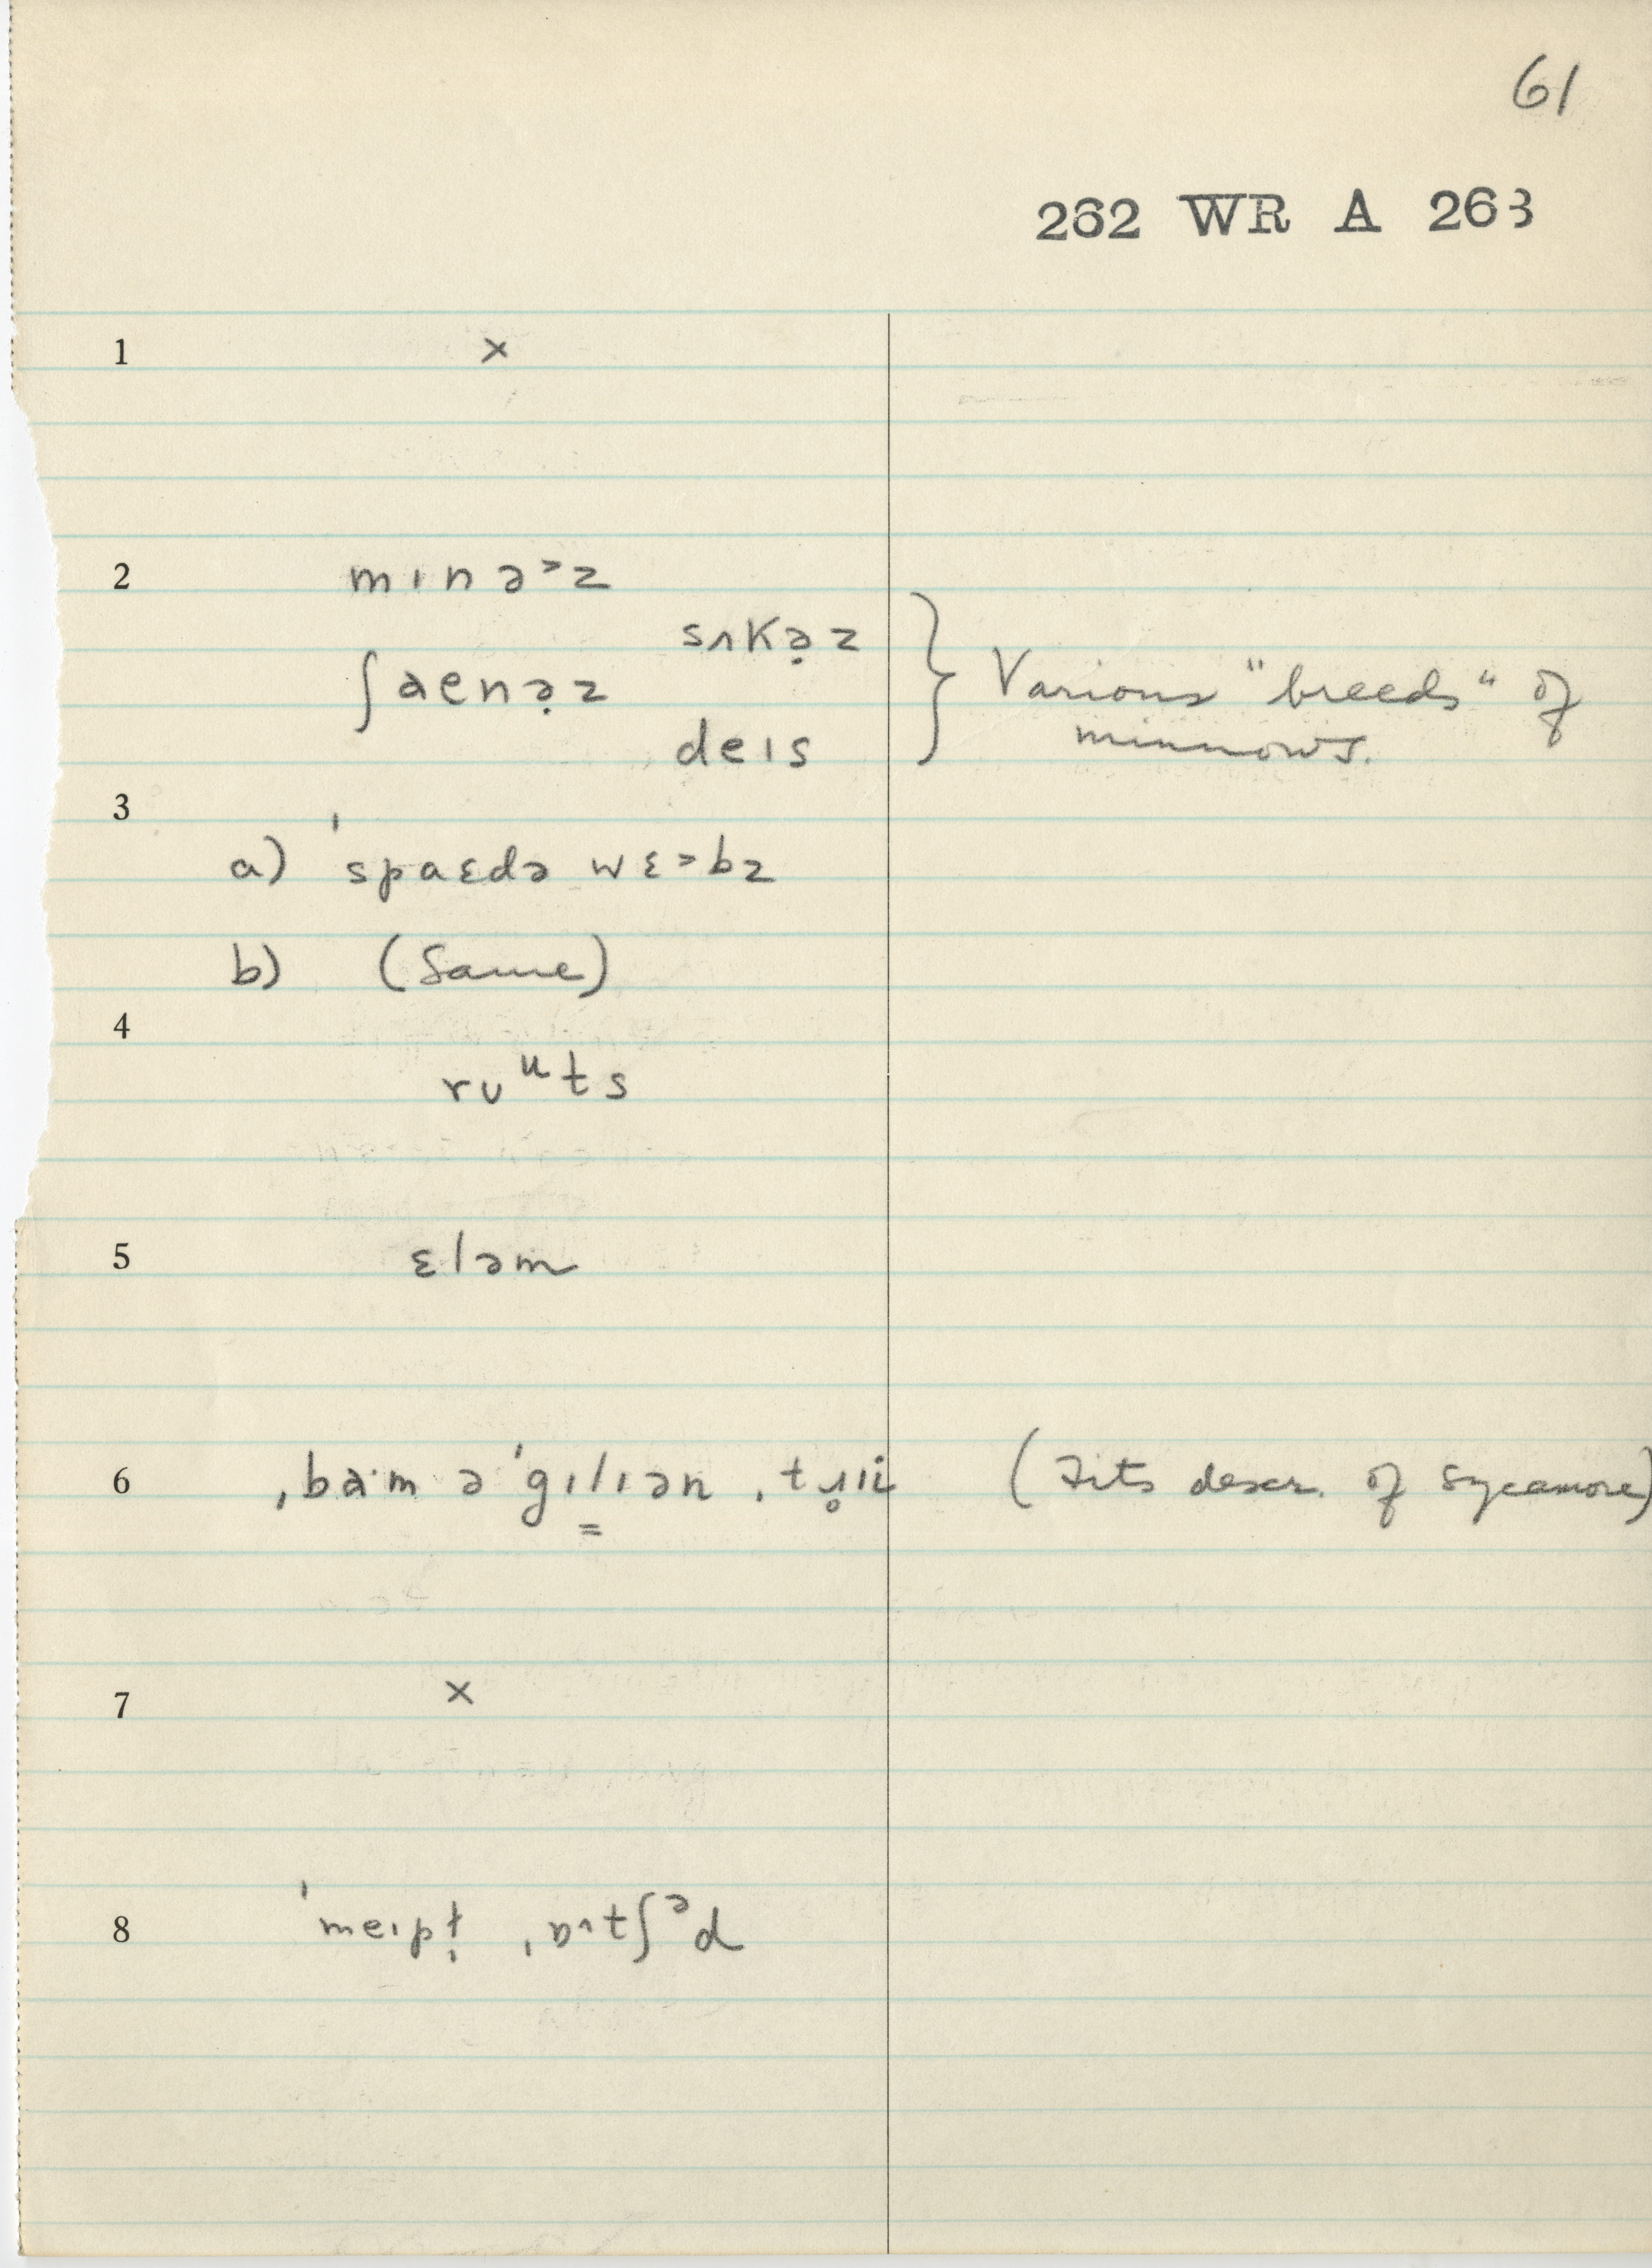 61
262 WR A 263
1 ×
2 mınə˃z
sʌkə̣z
ʃaenə̣z
deıs
} Various "breeds" of
minnows.
3
a) ˈspaɛdə wɛ˃bz
b) (Same)
4
rʊᵘts
5 ɛləm
6 ˌba·m əˈgılıən ˌtɹ̥ıi (Fits descr. of sycamore)
7 ×
8 ˈmeıpł̩ ˌɒʌtʃᵊd